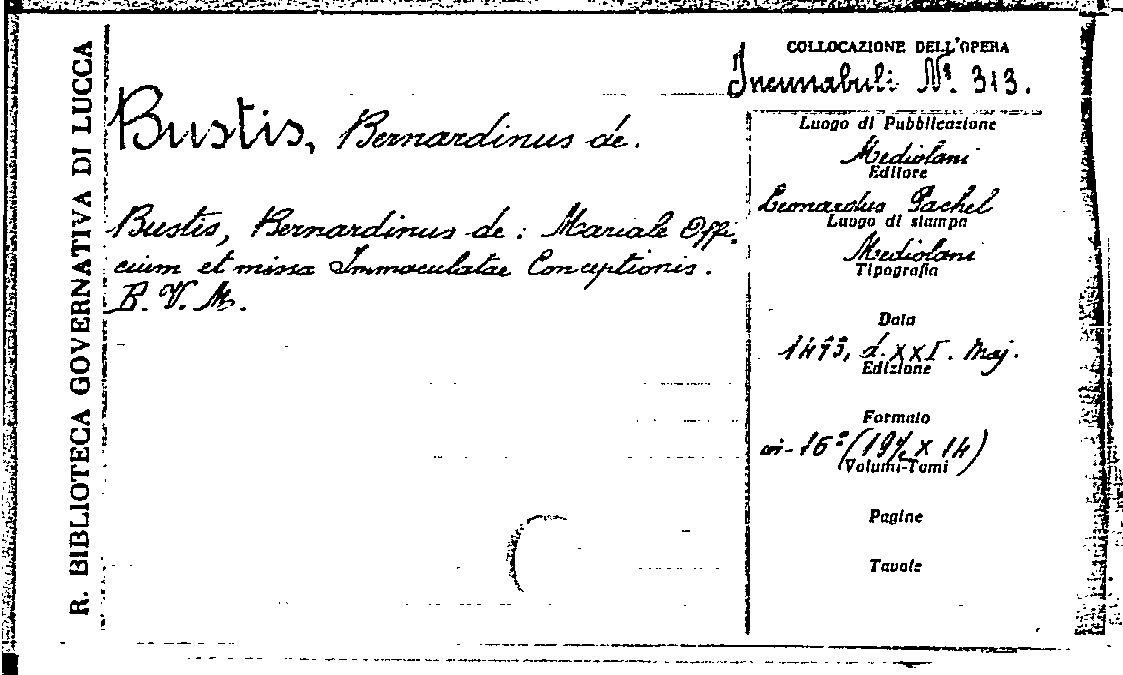 R. BIBLIOTECA GOVERNATIVA DI LUCCA
COLLOCAZIONE DELL'OPERA
Incunabuli Nº. 313.
Bustis, Bernardinus de.
Bustis, Bernardinus de: Mariale Offi-
cium et missa Immaculatae Conceptionis.
B. V. M.
Luogo di Pubblicazione
Mediolani
Editore
Leonardus Pachel
Luogo di stampa
Mediolani
Tipografia
Data
1493, d. XXI. Maj.
Edizione
Formato
in-16º (19½ x 14)
Volumi-Tomi
Pagine
Tavole